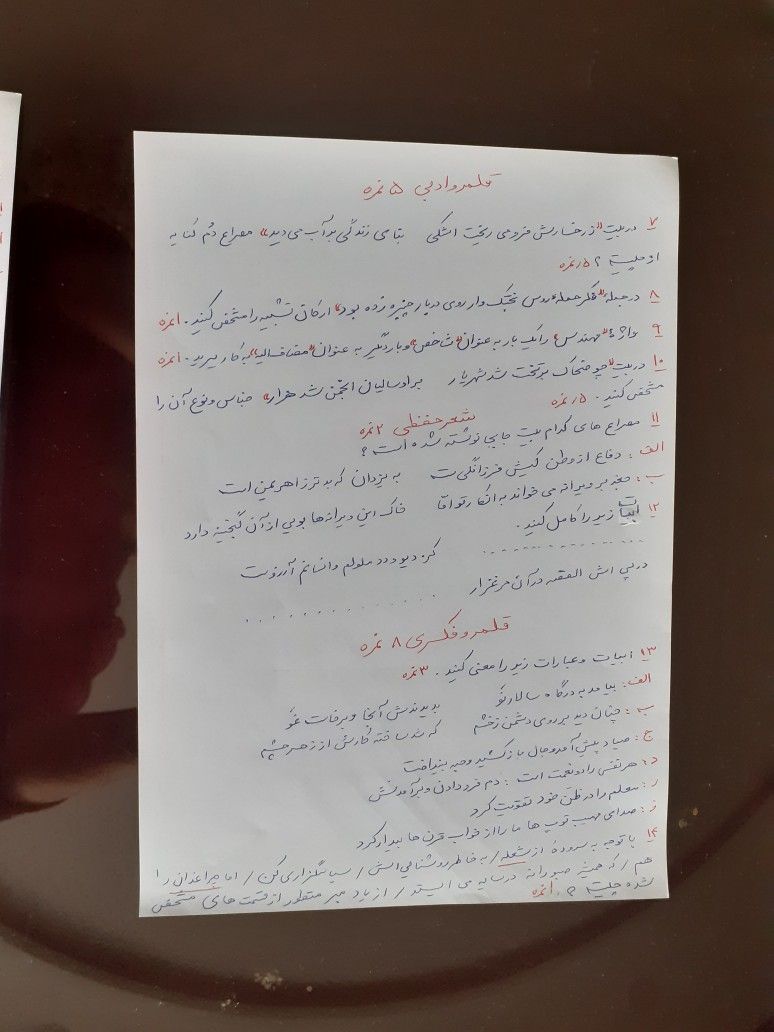 قلمرو ادبی ۵ نمره
۷ در بیت «ز رخسارش فرو می ریخت اشکی    بنای زندگی بر آب می دید» مصراع دُم کنایه
از چیست ؟ ۵/. نمره
۸ در جمله «فکر حمله روس بختک وار روی دربار چنبره زده بود» ارکان تشبیه را مشخص کنید. ۱ نمره
۹ واژهٔ «مهندس» را یک بار به عنوان «شاخص» و بار دیگر به عنوان «مضاف الیه» به کار ببرید. ۱ نمره
۱۰ در بیت «چو ضحاک بر تخت شد شهریار    بر او سالیان انجمن شد هزار» جناس و نوع آن را
مشخص کنید. ۵/. نمره
شعر حفظی ۲ نمره
۱۱ مصراع های کدام بیت جابجا نوشته شده است ؟
الف : دفاع از وطن کیش فرزانگی ست    به یزدان که بدتر ز اهریمنی است
ب : جغد بر ویرانه می خواند به انکار تو اما    خاک این ویرانه ها بویی از آن گنجینه دارد
۱۲ ابیات زیر را کامل کنید .
....................    کز دیو و دد ملولم و انسانم آرزوست
در پی اش القصه در آن مرغزار    ....................
قلمرو فکری ۸ نمره
۱۳ ابیات و عبارات زیر را معنی کنید . ۳ نمره
الف: بیامد به درگاه سالار نو    بدیدندش آنجا و برخاست غو
ب : چنان دید بر روی دشمن ز خشم    که شد ساخته کارش از زهر چشم
ج : صیاد پیش آمد و جال باز کشید و حبه بینداخت
د : هر نفسی را دو نعمت است : دم فرو دادن و برآمدنش
ر : معلم را در ظن خود تقویت کرد
ز : صدای مهیب توپ ها ما را از خواب قرن ها بیدار کرد
۱۴ با توجه به سرودهٔ از شعله / به خاطر روشنایی اش / سپاسگزاری کن / اما چراغدان را
هم / که همیشه صبورانه در سایه می ایستد / از یاد مبر منظور از قسمت های مشخص
شده چیست ؟ ۱ نمره